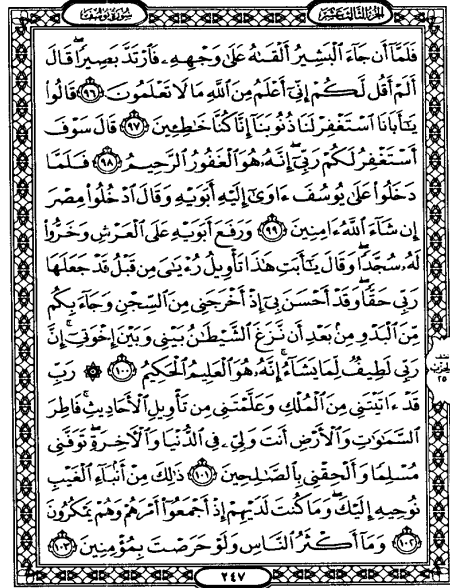 سُورَةُ يُوسُفَ
الجُزْءُ الثَّالِثَ عَشَرَ
فَلَمَّآ أَن جَآءَ ٱلْبَشِيرُ أَلْقَىٰهُ عَلَىٰ وَجْهِهِۦ فَٱرْتَدَّ بَصِيرًا ۖ قَالَ
أَلَمْ أَقُل لَّكُمْ إِنِّىٓ أَعْلَمُ مِنَ ٱللَّهِ مَا لَا تَعْلَمُونَ ﴿٩٦﴾ قَالُوا۟
يَـٰٓأَبَانَا ٱسْتَغْفِرْ لَنَا ذُنُوبَنَآ إِنَّا كُنَّا خَـٰطِـِٔينَ ﴿٩٧﴾ قَالَ سَوْفَ
أَسْتَغْفِرُ لَكُمْ رَبِّىٓ ۖ إِنَّهُۥ هُوَ ٱلْغَفُورُ ٱلرَّحِيمُ ﴿٩٨﴾ فَلَمَّا
دَخَلُوا۟ عَلَىٰ يُوسُفَ ءَاوَىٰٓ إِلَيْهِ أَبَوَيْهِ وَقَالَ ٱدْخُلُوا۟ مِصْرَ
إِن شَآءَ ٱللَّهُ ءَامِنِينَ ﴿٩٩﴾ وَرَفَعَ أَبَوَيْهِ عَلَى ٱلْعَرْشِ وَخَرُّوا۟
لَهُۥ سُجَّدًا ۖ وَقَالَ يَـٰٓأَبَتِ هَـٰذَا تَأْوِيلُ رُءْيَـٰىَ مِن قَبْلُ قَدْ جَعَلَهَا
رَبِّى حَقًّا ۖ وَقَدْ أَحْسَنَ بِىٓ إِذْ أَخْرَجَنِى مِنَ ٱلسِّجْنِ وَجَآءَ بِكُم
مِّنَ ٱلْبَدْوِ مِنۢ بَعْدِ أَن نَّزَغَ ٱلشَّيْطَـٰنُ بَيْنِى وَبَيْنَ إِخْوَتِىٓ ۚ إِنَّ
رَبِّى لَطِيفٌ لِّمَا يَشَآءُ ۚ إِنَّهُۥ هُوَ ٱلْعَلِيمُ ٱلْحَكِيمُ ﴿١٠٠﴾ ۞ رَبِّ
قَدْ ءَاتَيْتَنِى مِنَ ٱلْمُلْكِ وَعَلَّمْتَنِى مِن تَأْوِيلِ ٱلْأَحَادِيثِ ۚ فَاطِرَ
ٱلسَّمَـٰوَٰتِ وَٱلْأَرْضِ أَنتَ وَلِىِّۦ فِى ٱلدُّنْيَا وَٱلْـَٔاخِرَةِ ۖ تَوَفَّنِى
مُسْلِمًا وَأَلْحِقْنِى بِٱلصَّـٰلِحِينَ ﴿١٠١﴾ ذَٰلِكَ مِنْ أَنۢبَآءِ ٱلْغَيْبِ
نُوحِيهِ إِلَيْكَ ۖ وَمَا كُنتَ لَدَيْهِمْ إِذْ أَجْمَعُوٓا۟ أَمْرَهُمْ وَهُمْ يَمْكُرُونَ
﴿١٠٢﴾ وَمَآ أَكْثَرُ ٱلنَّاسِ وَلَوْ حَرَصْتَ بِمُؤْمِنِينَ ﴿١٠٣﴾
نصف
الحزب
٢٥
٢٤٧